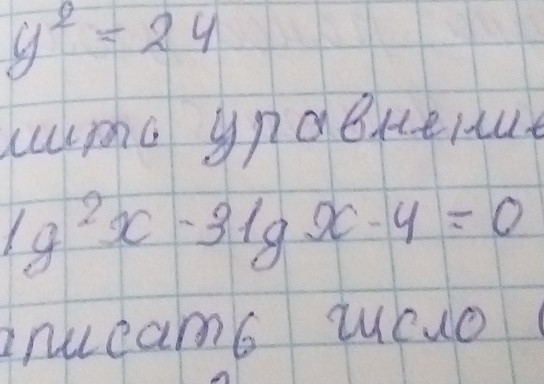 y² = 24
шить уравнение
lg²x - 3lgx - 4 = 0
аписать число (